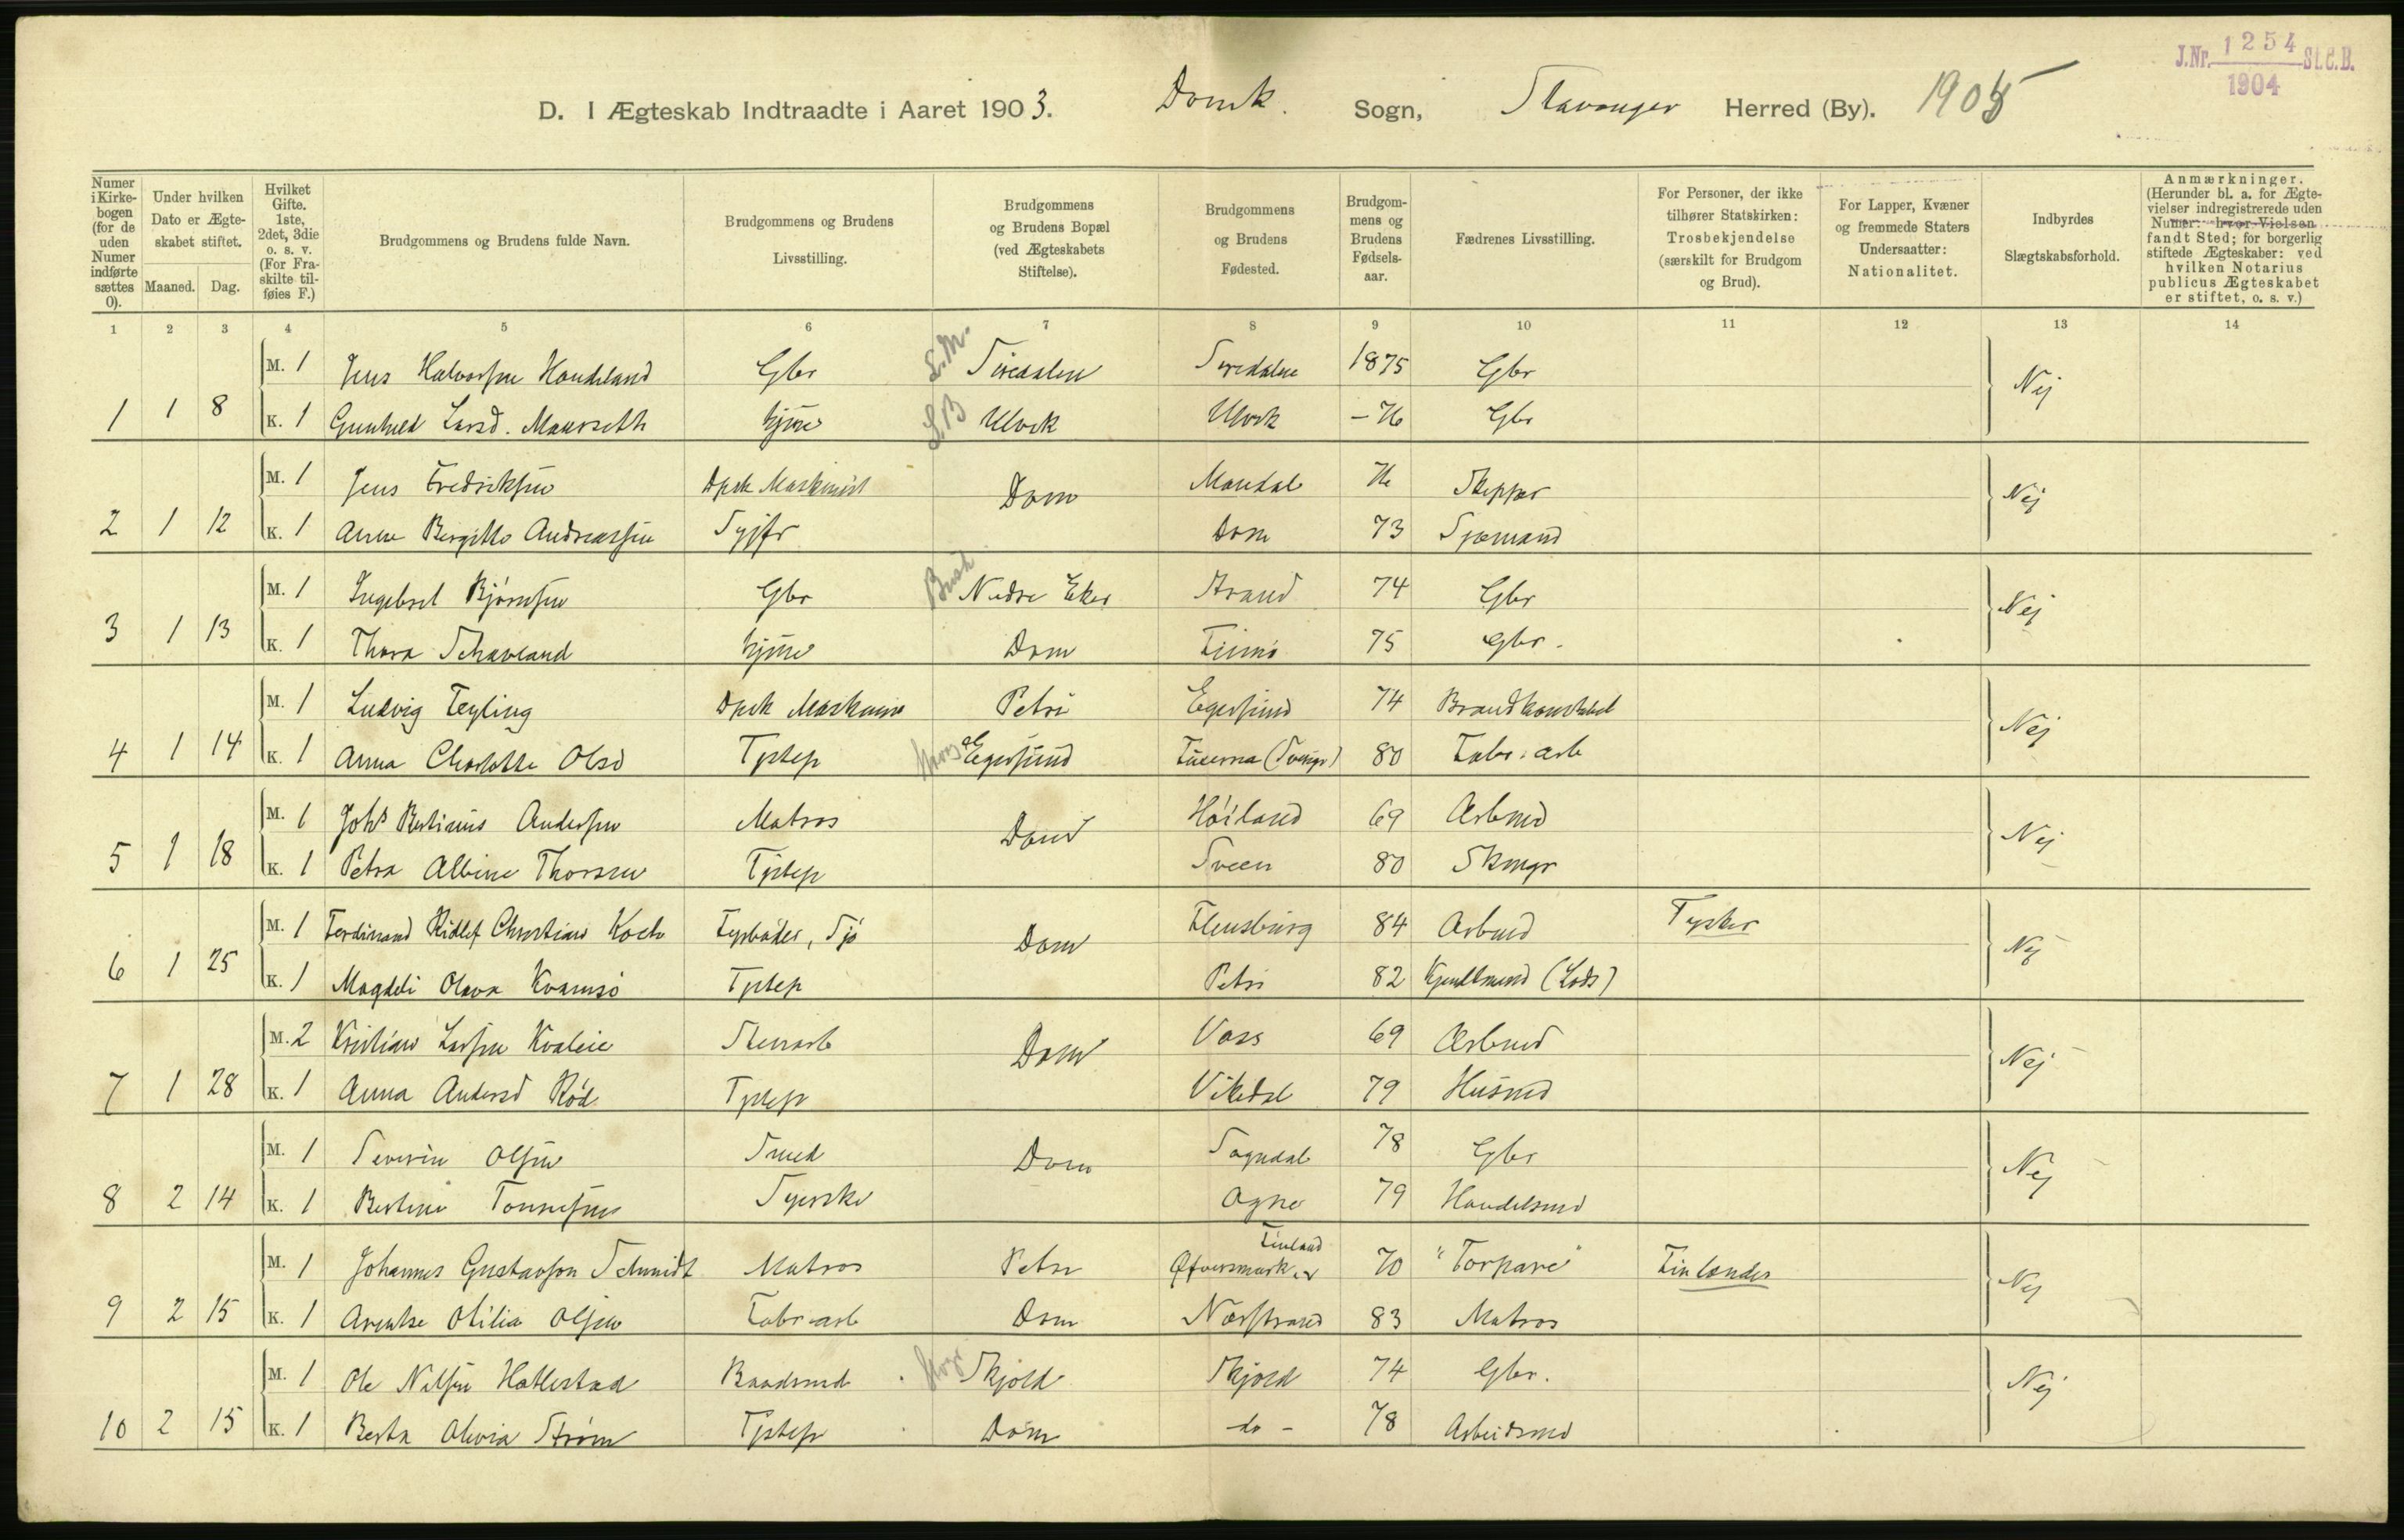 J.Nr. 1254 St.C.B.
1904
D. I Ægteskab Indtraadte i Aaret 1903. Domk. Sogn, Stavanger Herred (By). 1905
Numer i Kirkebogen (for de uden Numer indførte sættes 0).
Under hvilken Dato er Ægteskabet stiftet.
Maaned. Dag.
Hvilket Gifte. 1ste, 2det, 3die o. s. v. (For Fraskilte tilføies F.)
Brudgommens og Brudens fulde Navn.
Brudgommens og Brudens Livsstilling.
Brudgommens og Brudens Bopæl (ved Ægteskabets Stiftelse).
Brudgommens og Brudens Fødested.
Brudgommens og Brudens Fødselsaar.
Fædrenes Livsstilling.
For Personer, der ikke tilhører Statskirken: Trosbekjendelse (særskilt for Brudgom og Brud).
For Lapper, Kvæner og fremmede Staters Undersaatter: Nationalitet.
Indbyrdes Slægtskabsforhold.
Anmærkninger. (Herunder bl. a. for Ægtevielser indregistrerede uden Numer: hvor Vielsen fandt Sted; for borgerlig stiftede Ægteskaber: ved hvilken Notarius publicus Ægteskabet er stiftet, o. s. v.)
1 2 3 4 5 6 7 8 9 10 11 12 13 14
M. 1 Jens Halvorsen Handeland Gbr L.M. Siredalen Siredalen 1875 Gbr
1 1 8 K. 1 Gunhild Larsd. Maurseth hjme S.B Ulvik Ulvik - 76 Gbr Nej
M. 1 Jens Fredriksen Dpsk Maskinist Dom Mandal 76 Skipper
2 1 12 K. 1 Anne Bergitte Andreassen Syjfr Dom 73 Sjømand Nej
M. 1 Ingebret Bjørnsen Gbr Busk Nedre Eker Strand 74 Gbr
3 1 13 K. 1 Thora Schavland hjme Dom Finnø 75 Gbr. Nej
M. 1 Ludvig Tegling Dpsk Maskinm Petri Egersund 74 Brandkonstabel
4 1 14 K. 1 Anna Charlotte Olsd Tjstep Egersund (Sverige) 80 Fabr. arb Nej
M. 1 Johs Bertinius Andersen Matros Dom Høiland 69 Arbmd
5 1 18 K. 1 Petra Albine Thorsen Tjstep Sveen 80 Skmgr Nej
M. 1 Ferdinand Ridlef Christian Koch Fyrbøder, Sjø Dom Flensburg 84 Arbmd Tysker
6 1 25 K. 1 Magdeli Olava Kvamsø Tjstep Petri 82 Kjendtmand (Lods) Nej
M. 2 Kristian Larsen Kvaleie Stenarb Dom Voss 69 Arbmd
7 1 28 K. 1 Anna Andersd Rød Tjstep Vikedal 79 Husmd Nej
M. 1 Severin Olsen Smed Dom Sogndal 78 Gbr
8 2 14 K. 1 Bertine Tønnesen Syerske Ogne 79 Handelsmd Nej
M. 1 Johannes Gustavson Schmidt Matros Petri Øfvermark Finland 70 "Torpare" Finlænder
9 2 15 K. 1 Arentse Otilia Olsen Fabr arb Dom Nærstrand 83 Matros Nej
M. 1 Ole Nilsen Hatlestad Baadsmd Skjold Skjold 74 Gbr.
10 2 15 K. 1 Berta Olivia Strøm Tjstep Dom do - 78 Arbeidsmd Nej